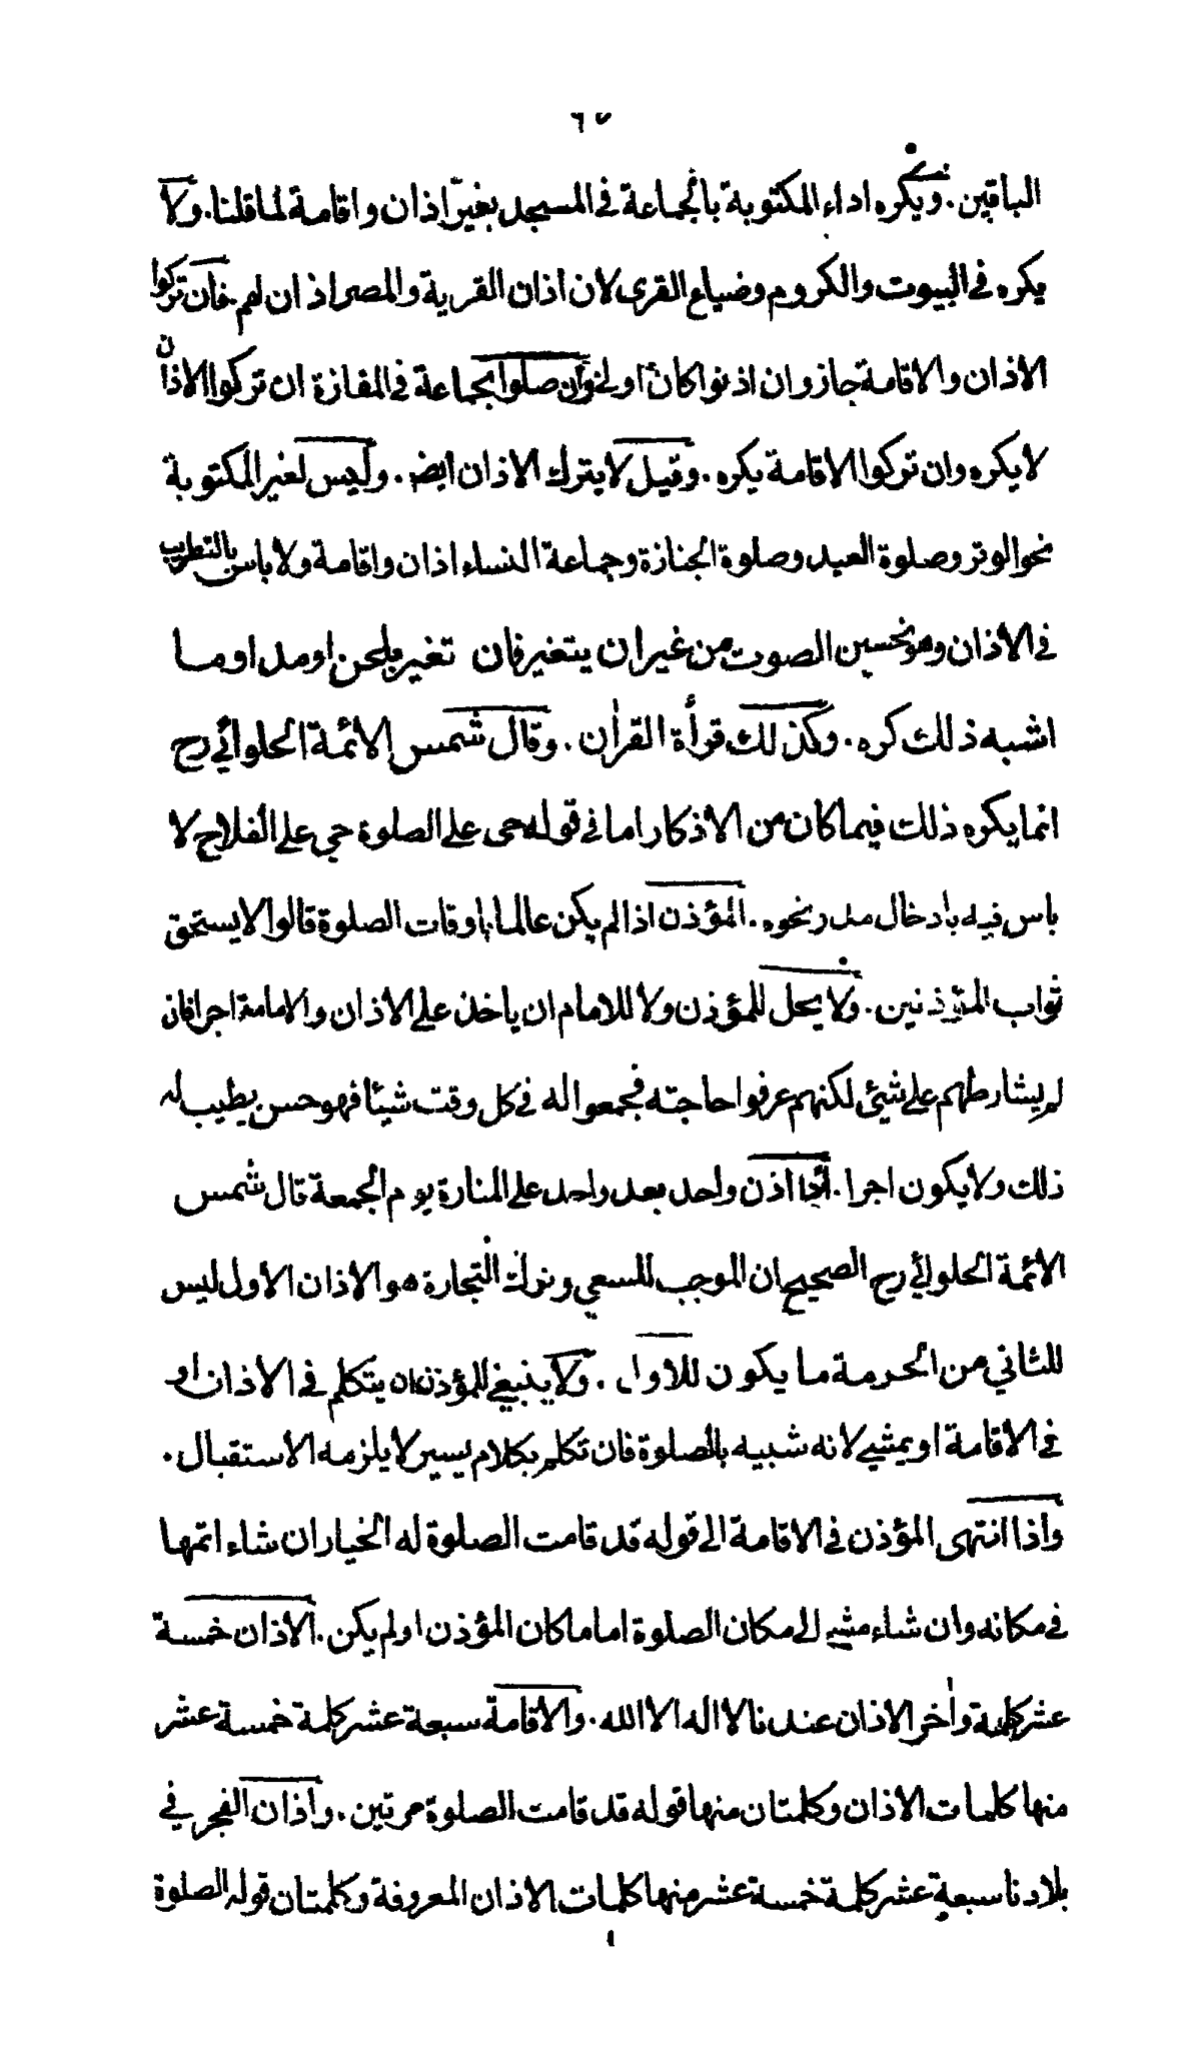 ٦٧
الباقين . ويكره اداء المكتوبة بالجماعة في المسجد بغير اذان واقامة لما قلنا . ولا
يكره في البيوت والكروم وضياع القرى لان اذان القرية والمصر اذان لهم . فان تركوا
الاذان والاقامة جاز وان اذنوا كان اولى وان صلوا بجماعة في المفازة ان تركوا الاذان
لا يكره وان تركوا الاقامة يكره . وقيل لا يترك الاذان ايضا . وليس لغير المكتوبة
نحو الوتر وصلوة العيد وصلوة الجنازة وجماعة النساء اذان واقامة ولا باس بالتطريب
في الاذان وهو تحسين الصوت من غير ان يتغير فان تغير بلحن او مد او ما
اشبه ذلك كره . وكذلك قرأة القرأن . وقال شمس الائمة الحلوائي رح
انما يكره ذلك فيما كان من الاذكار اما في قوله حي على الصلوة حي على الفلاح لا
باس فيه بادخال مد ونحوه . المؤذن اذا لم يكن عالما باوقات الصلوة قالوا لا يستحق
ثواب المؤذنين . ولا يحل للمؤذن ولا للامام ان ياخذ على الاذان والامامة اجرا فان
لم يشارطهم على شيئ لكنهم عرفوا حاجته فجمعوا له في كل وقت شيئا فهو حسن يطيب له
ذلك ولا يكون اجرا . اذا اذن واحد بعد واحد على المنارة يوم الجمعة قال شمس
الائمة الحلوائي رح الصحيح ان الموجب للسعي وترك التجارة هو الاذان الاول ليس
للثاني من الحرمة ما يكون للاول . ولا ينبغي للمؤذن ان يتكلم في الاذان او
في الاقامة او يمشي لانه شبيه بالصلوة فان تكلم بكلام يسير لا يلزمه الاستقبال .
واذا انتهى المؤذن في الاقامة الى قوله قد قامت الصلوة له الخيار ان شاء اتمها
في مكانه وان شاء مشى الى مكان الصلوة اماما كان المؤذن او لم يكن . الاذان خمسة
عشر كلمة وأخر الاذان عندنا لا اله الا الله . والاقامة سبعة عشر كلمة خمسة عشر
منها كلمات الاذان وكلمتان منها قوله قد قامت الصلوة مرتين . واذان الفجر في
بلادنا سبعة عشر كلمة خمسة عشر منها كلمات الاذان المعروفة وكلمتان قوله الصلوة